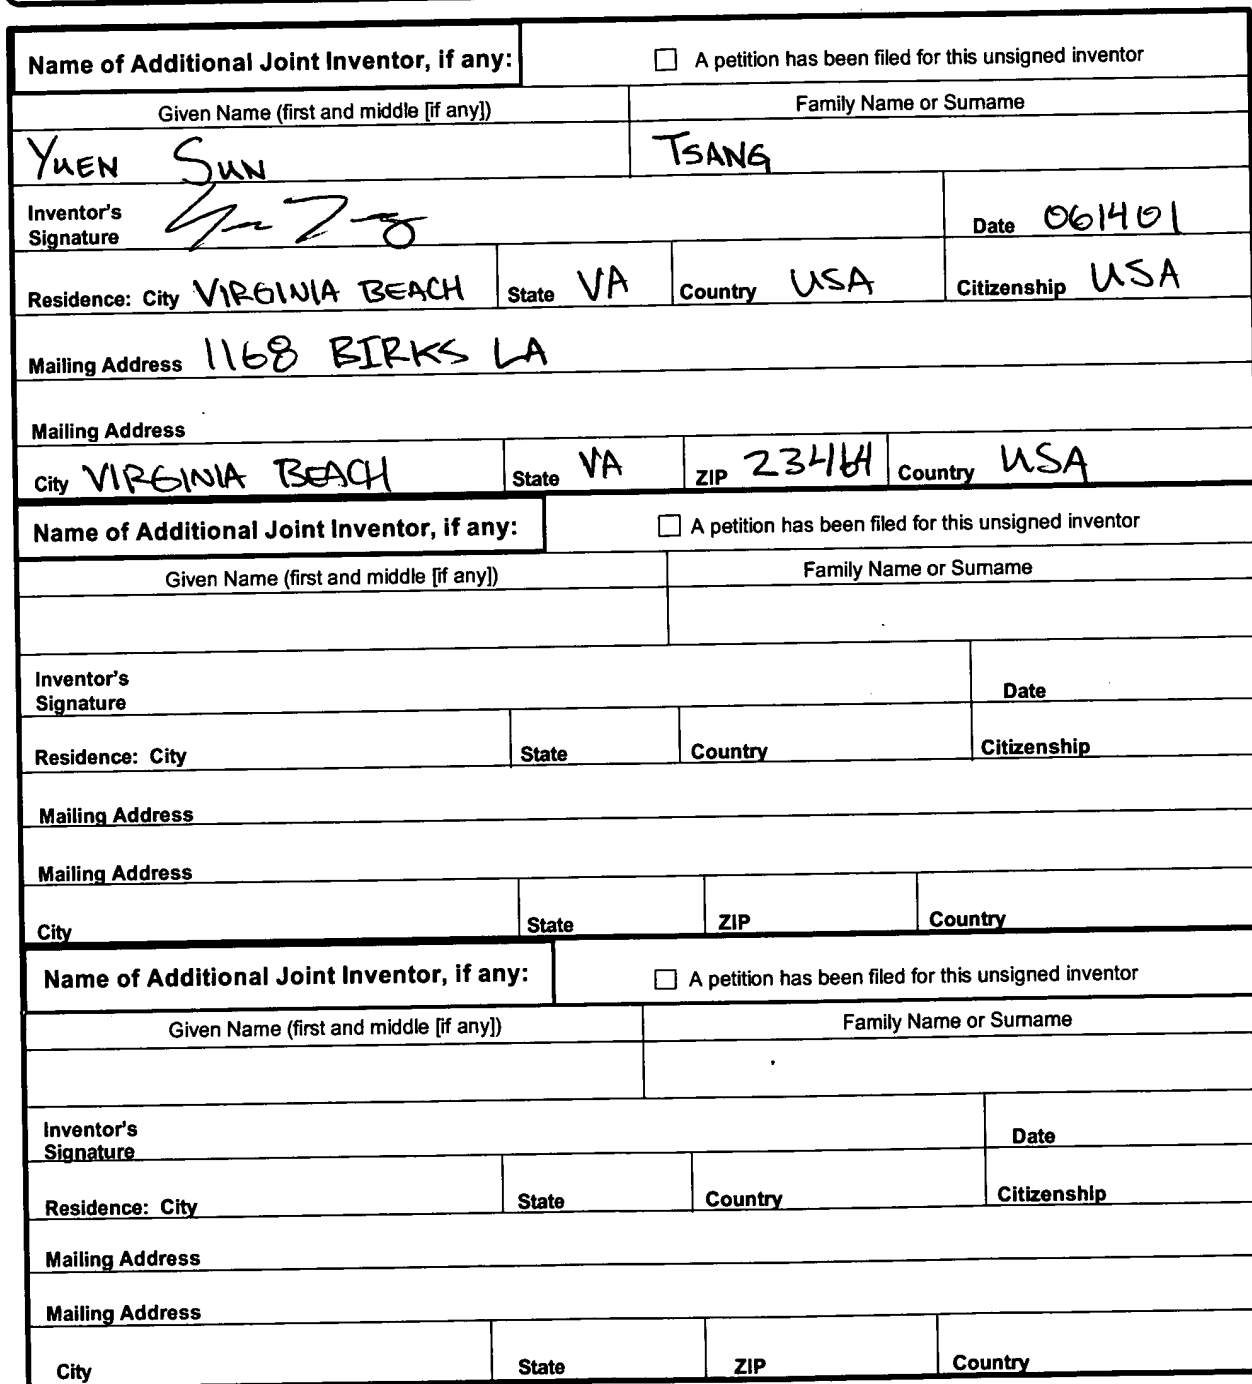 Name of Additional Joint Inventor, if any: A petition has been filed for this unsigned inventor
Given Name (first and middle [if any]) Family Name or Surname
YUEN SUN TSANG
Inventor's
Signature Date 061401
Residence: City VIRGINIA BEACH State VA Country USA Citizenship USA
Mailing Address 1168 BIRKS LA
Mailing Address
City VIRGINIA BEACH State VA ZIP 23464 Country USA
Name of Additional Joint Inventor, if any: A petition has been filed for this unsigned inventor
Given Name (first and middle [if any]) Family Name or Surname
Inventor's
Signature Date
Residence: City State Country Citizenship
Mailing Address
Mailing Address
City State ZIP Country
Name of Additional Joint Inventor, if any: A petition has been filed for this unsigned inventor
Given Name (first and middle [if any]) Family Name or Surname
Inventor's
Signature Date
Residence: City State Country Citizenship
Mailing Address
Mailing Address
City State ZIP Country